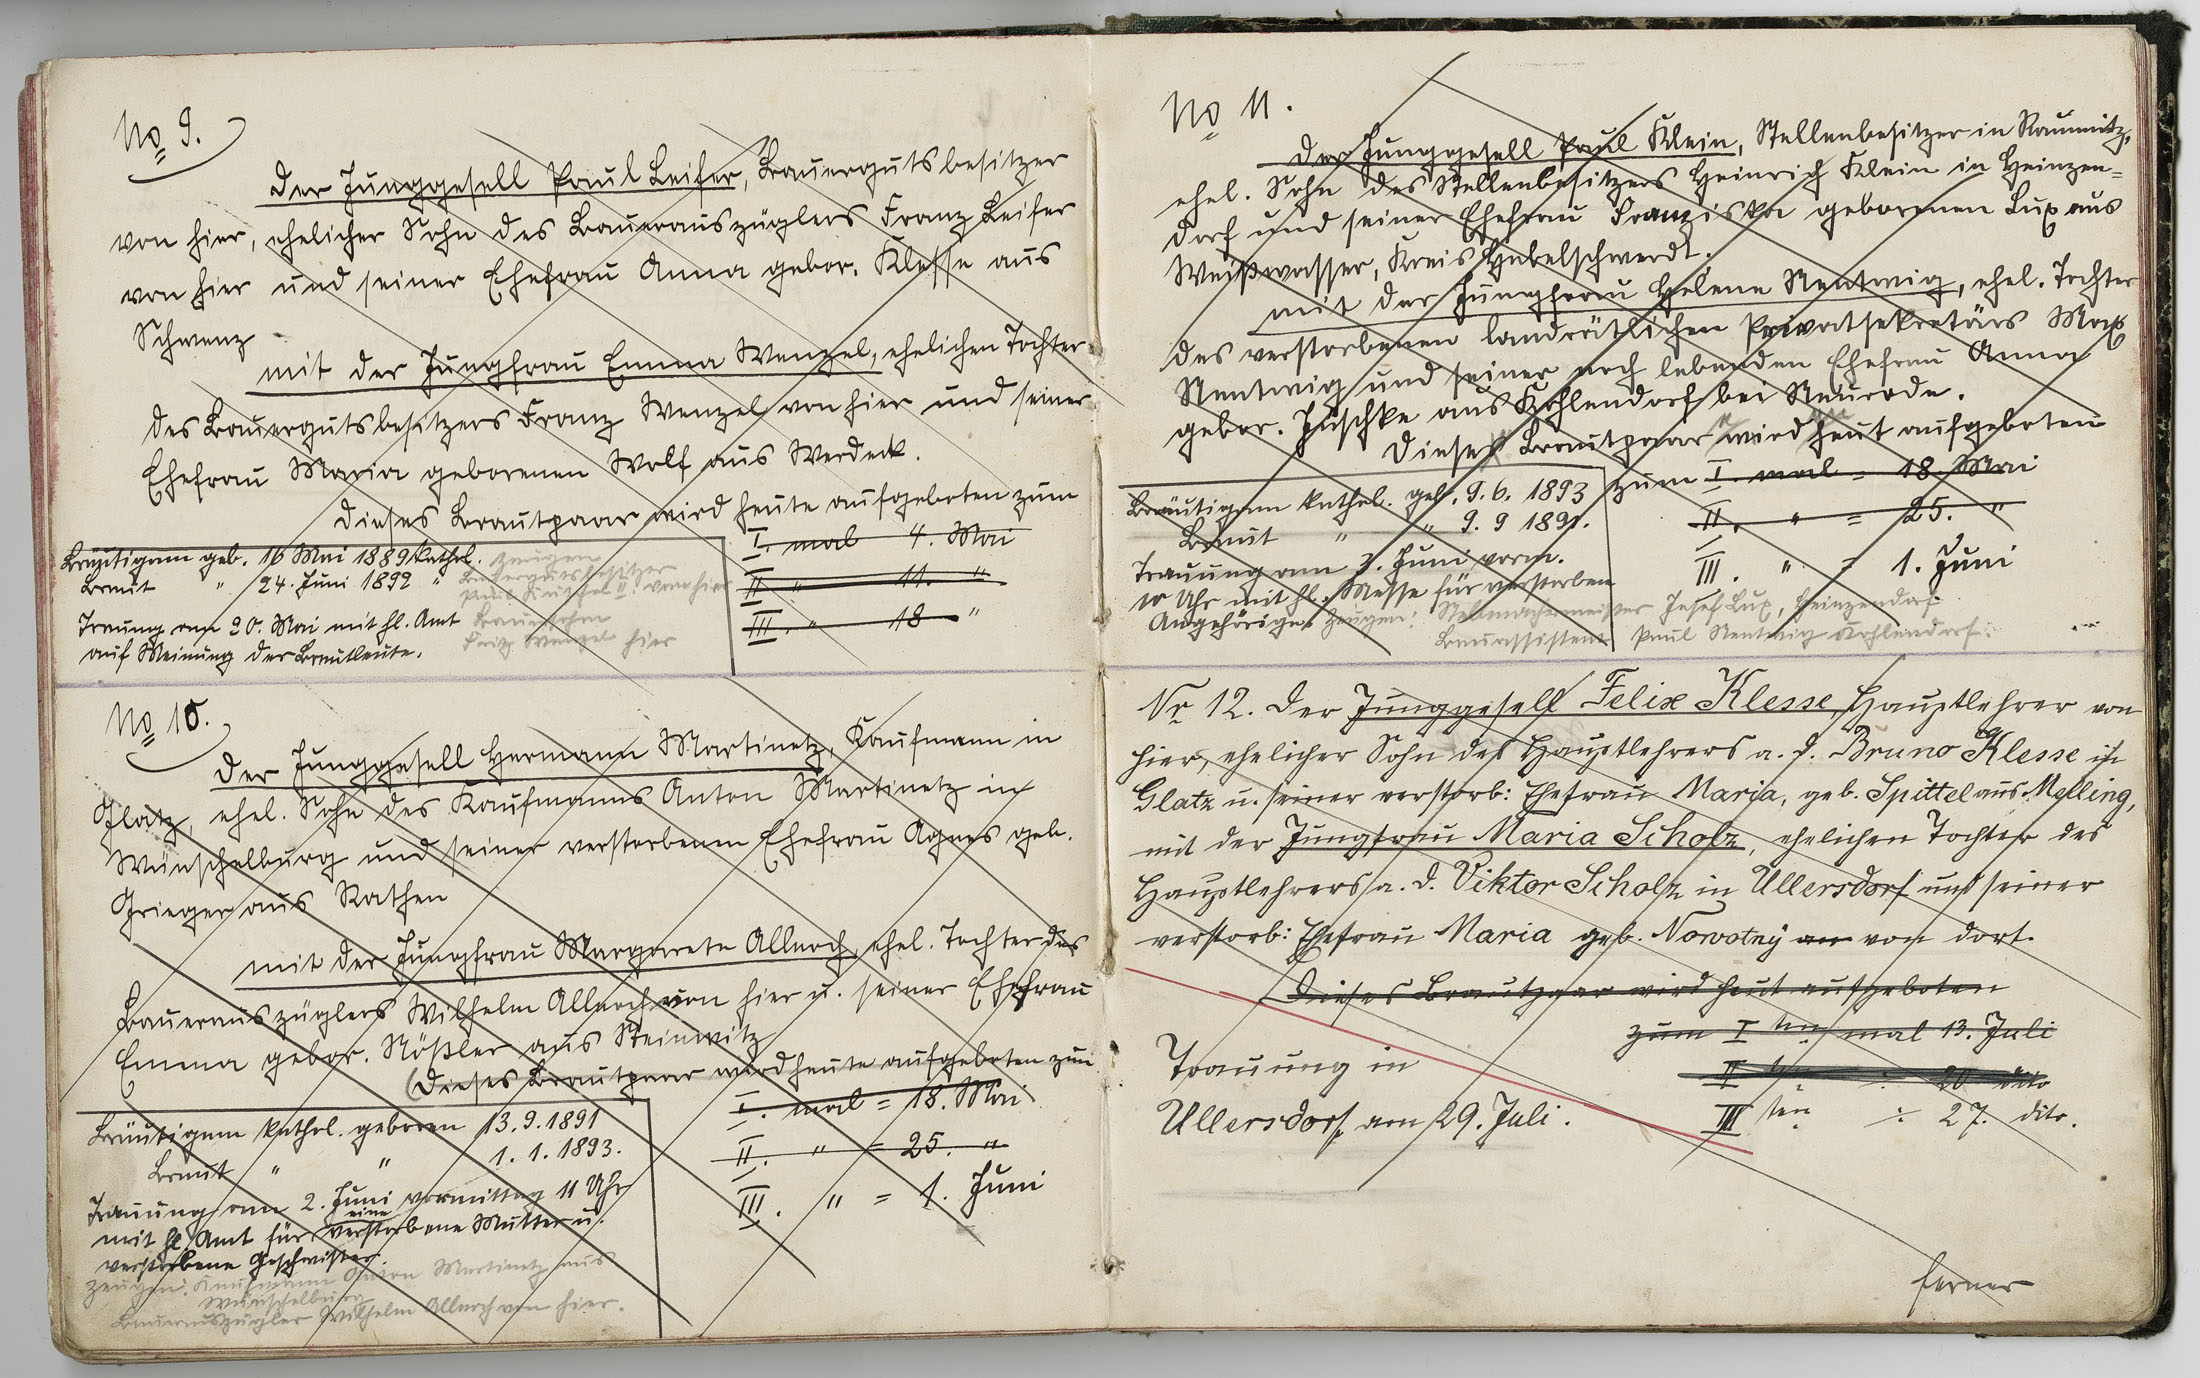 No 9.
Der Junggesell Paul Leifer, Bauergutsbesitzer
von hier, ehelicher Sohn des Bauerauszüglers Franz Leifer
von hier und seiner Ehefrau Anna gebor. Klesse aus
Schwenz
mit der Jungfrau Emma Wenzel, ehelichen Tochter
des Bauergutsbesitzers Franz Wenzel von hier und seiner
Ehefrau Maria geborenen Wolf aus Werdeck.
Dieses Brautpaar wird heute aufgeboten zum
I. mal 4. Mai
II " 11. "
III. " 18 "
Bräutigam geb. 16 Mai 1889 kathol.
Braut " 24. Juni 1892 "
Trauung am 20. Mai mit hl. Amt
auf Meinung der Brautleute.
Zeugen
Bauergutsbesitzer
Paul II. von hier
Bauersohn
Fritz Wenzel hier
No 10.
Der Junggesell Hermann Martinetz, Kaufmann in
Glatz, ehel. Sohn des Kaufmanns Anton Martinetz in
Wünschelburg und seiner verstorbenen Ehefrau Agnes geb.
Grieger aus Rathen
mit der Jungfrau Margarete Allnoch, ehel. Tochter des
Bauerauszüglers Wilhelm Allnoch von hier u. seiner Ehefrau
Emma gebor. Rößler aus Steinwitz
Dieses Brautpaar wird heute aufgeboten zum
I. mal = 18. Mai
II. " = 25. "
III. " = 1. Juni
Bräutigam kathol. geboren 13. 9. 1891
Braut " " 1. 1. 1893.
Trauung am 2. Juni vormittag 11 Uhr
mit hl Amt für eine verstorbene Mutter u.
verstorbene Geschwister.
Zeugen: Kaufmann Anton Martinetz aus
Wünschelburg
Bauerauszügler Wilhelm Allnoch von hier.
No 11.
Der Junggesell Paul Klein, Stellenbesitzer in Raumnitz,
ehel. Sohn des Stellenbesitzers Heinrich Klein in Heinzen=
dorf und seiner Ehefrau Franziska geborenen Lux aus
Weißwasser, Kreis Habelschwerdt.
mit der Jungfrau Helene Rentwig, ehel. Tochter
des verstorbenen landrätlichen Privatsekretärs Max
Rentwig und seiner noch lebenden Ehefrau Anna
gebor. Juschke aus Kohlendorf bei Neurode.
Dieses Brautpaar wird heut aufgeboten
zum I. mal = 18. Mai
II. " = 25. "
III. " = 1. Juni
Bräutigam kathol. geb. 9. 6. 1893
Braut " " 9. 9 1891.
Trauung am 3. Juni vorm.
10 Uhr mit hl. Messe für verstorben
Angehörige. Zeugen: Stellmachermeister Josef Lux, Heinzendorf
Bauassistent Paul Rentwig Kohlendorf.
Nr 12. Der Junggesell Felix Klesse, Hauptlehrer von
hier, ehelicher Sohn des Hauptlehrers a. D. Bruno Klesse in
Glatz u. seiner verstorb: Ehefrau Maria, geb. Spittel aus Melling,
mit der Jungfrau Maria Scholz, ehelichen Tochter des
Hauptlehrers a. D. Viktor Scholz in Ullersdorf und seiner
verstorb: Ehefrau Maria geb. Nowotny an von dort.
Dieses Brautpaar wird heut aufgeboten
zum I ten mal 13. Juli
II ten : 20 dito
III ten : 27. dito.
Trauung in
Ullersdorf am 29. Juli.
ferner